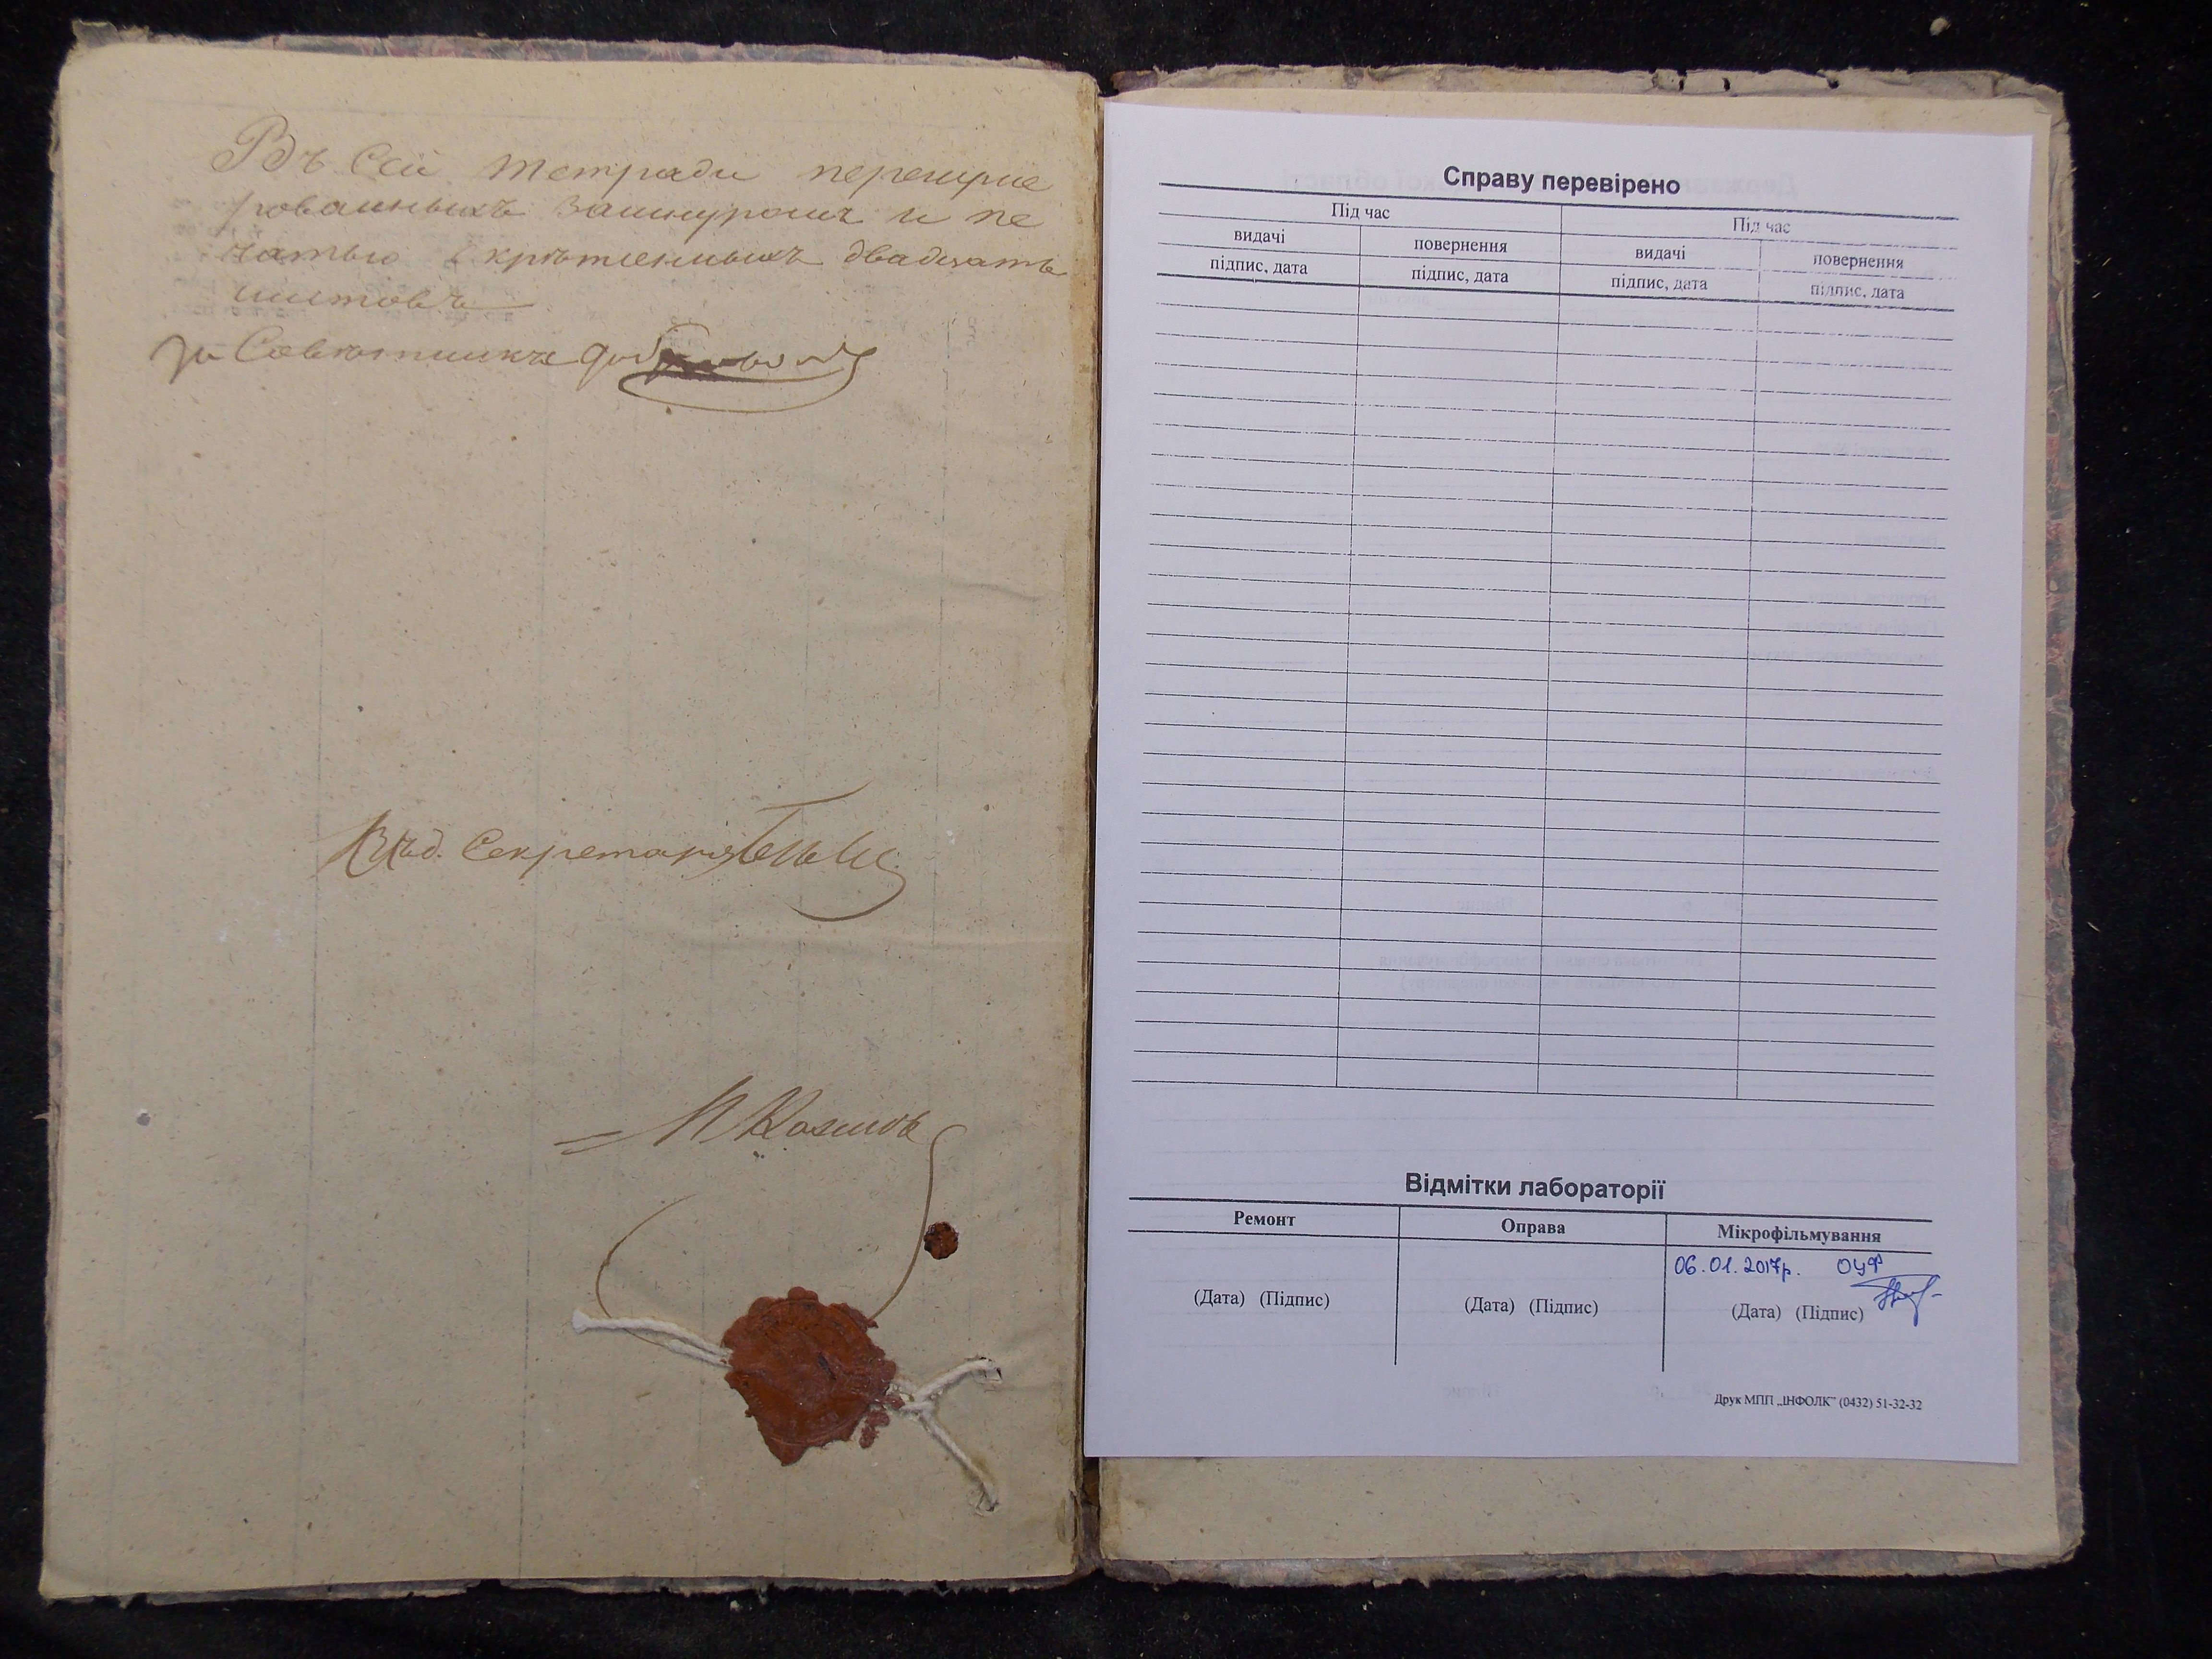 Въ Сей тетради перенуме
рованныхъ зашнуром и пе
чатью скрѣпленныхъ двадцать
листовъ
За Советника
Секретаря
Справу перевірено
Під час Під час
видачі повернення видачі повернення
підпис, дата підпис, дата підпис, дата підпис, дата
Відмітки лабораторії
Ремонт Оправа Мікрофільмування
06.01.2017р. ОЦФ
(Дата) (Підпис) (Дата) (Підпис) (Дата) (Підпис)
Друк МПП „ІНФОЛК” (0432) 51-32-32